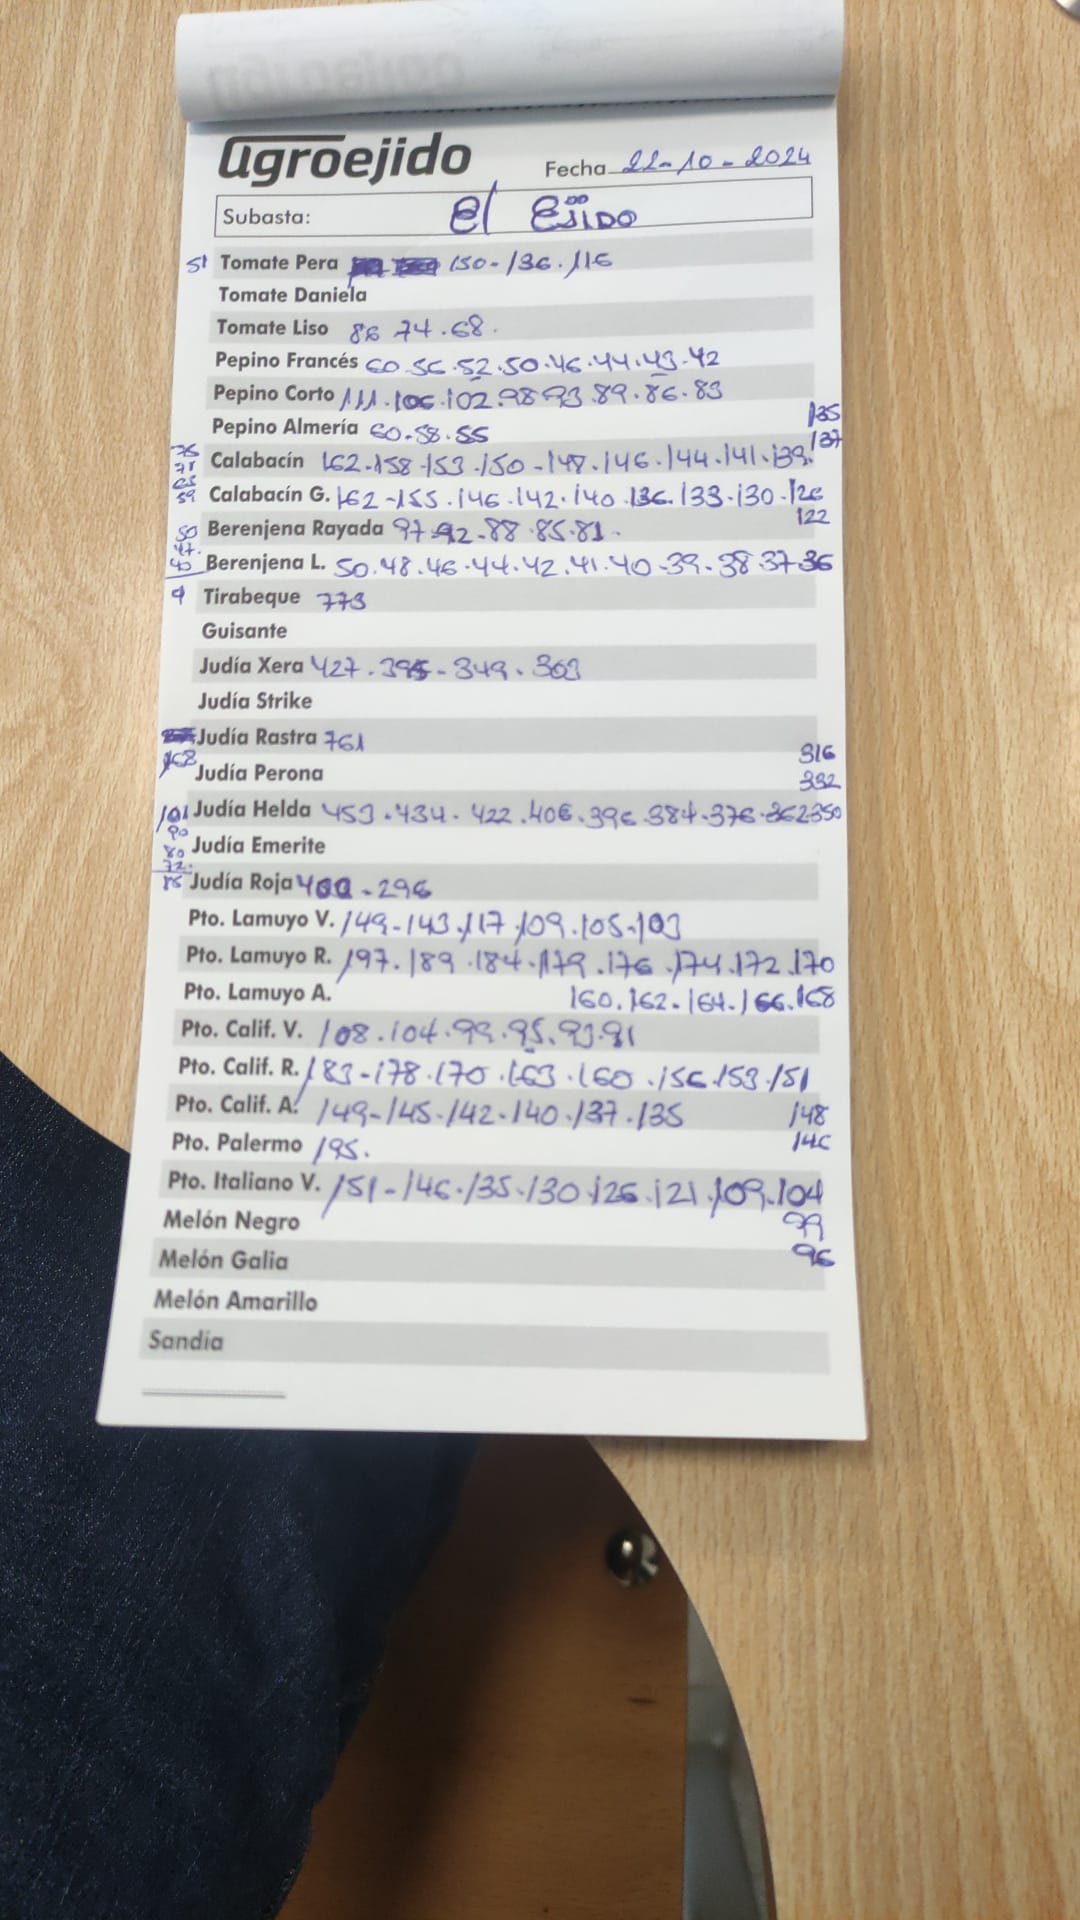 agroejido
Fecha 22-10-2024
Subasta: El Ejido
51 Tomate Pera 150-136.116
Tomate Daniela
Tomate Liso 86 74.68.
Pepino Francés 60.56.52.50.46.44.43.42
Pepino Corto 111.106.102.98 93.89.86.83
Pepino Almería 60.58.55
135
137
75
71
65
59
Calabacín 162-158-153.150-148.146.144.141.139.
Calabacín G. 162-155.146.142.140.136.133.130.126
122
50
47.
43
Berenjena Rayada 97-92-88.85.81.
Berenjena L. 50.48.46.44.42.41.40.39.38.37.36
Tirabeque 773
Guisante
Judía Xera 427.395-349.303
Judía Strike
Judía Rastra 761
168
316
332
Judía Perona
101
90
80
72.
85
Judía Helda 453.434.422.406.396.384.376.362 350
Judía Emerite
Judía Roja 400-296
Pto. Lamuyo V. 149-143.117.109.105.103
Pto. Lamuyo R. 197.189.184.179.176.174.172.170
Pto. Lamuyo A. 160.162.164.166.168
Pto. Calif. V. 108.104.99.95.93.91
Pto. Calif. R. 183-178.170.163.160.156.153.151
Pto. Calif. A. 149-145.142.140.137.135 148
146
Pto. Palermo 195.
Pto. Italiano V. 151-146.135.130.126.121.109.104
99
96
Melón Negro
Melón Galia
Melón Amarillo
Sandía